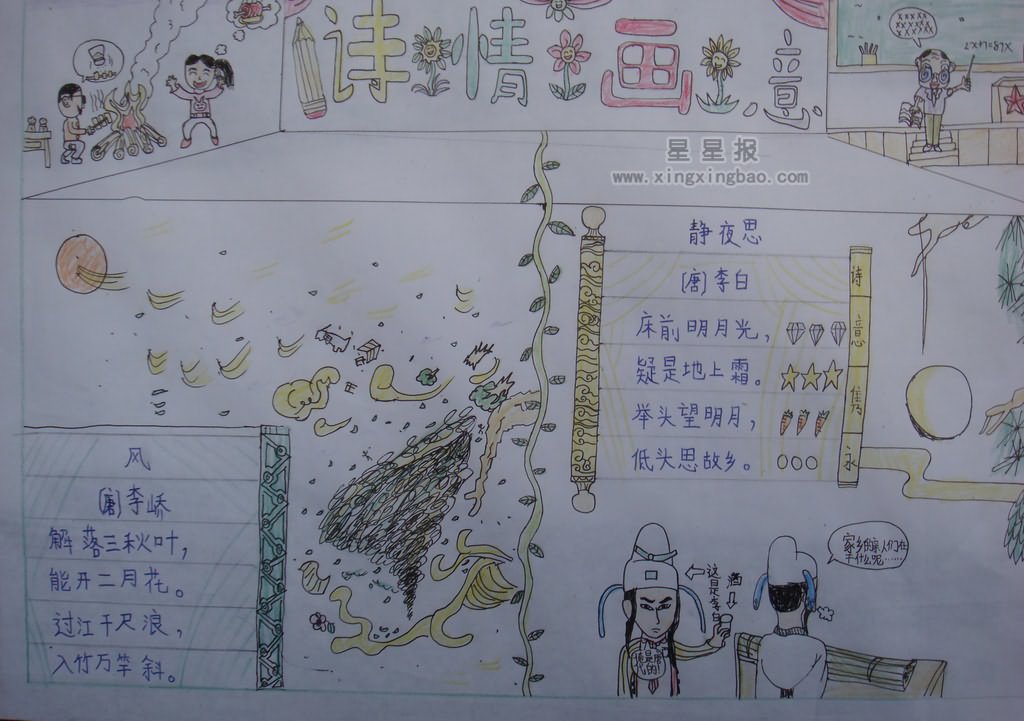 诗情画意
XXXXX
XXXXX
2X+7=87X
星星报
www.xingxingbao.com
静夜思
[唐]李白
床前明月光，
疑是地上霜。
举头望明月，
低头思故乡。
诗意隽永
风
[唐]李峤
解落三秋叶，
能开二月花。
过江千尺浪，
入竹万竿斜。
这是李白
酒
家乡的亲人们在
干什么呢……